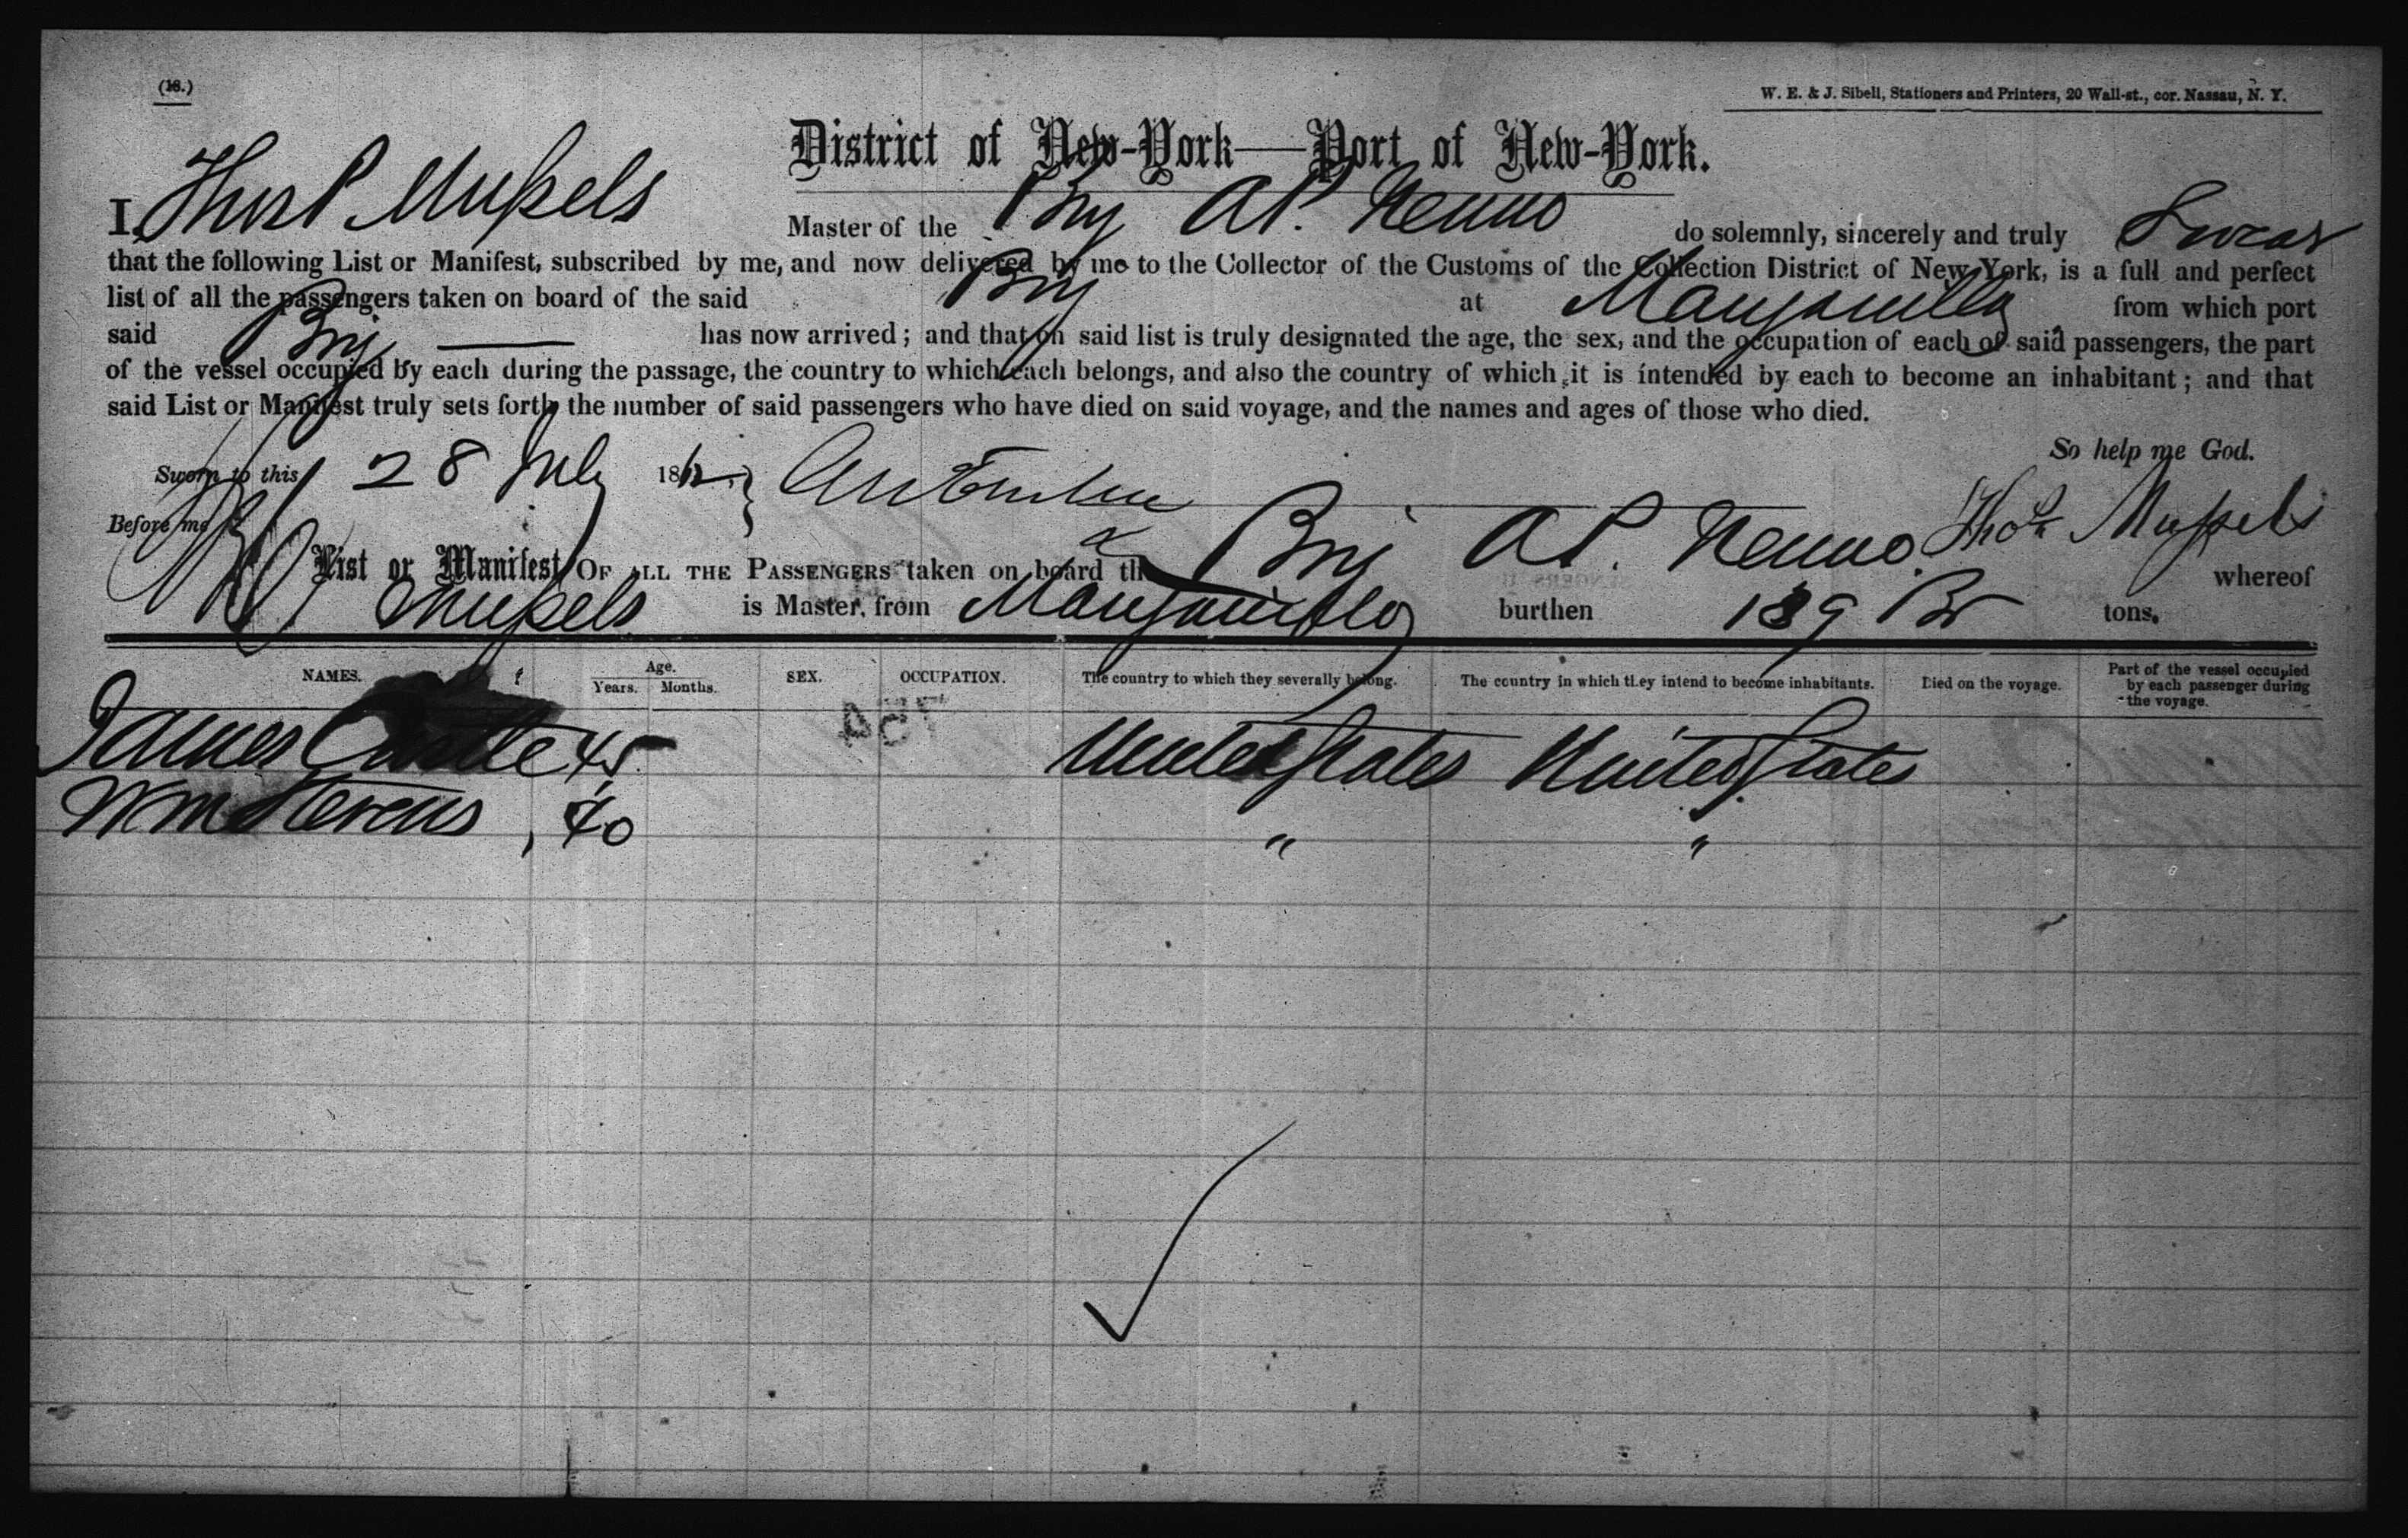 (18.)
W. E. & J. Sibell, Stationers and Printers, 20 Wall-st., cor. Nassau, N. Y.
District of New-York—Port of New-York.
I, Thos P Mussels Master of the Brig A P. do solemnly, sincerely and truly Swear
that the following List or Manifest, subscribed by me, and now delivered by me to the Collector of the Customs of the Collection District of New York, is a full and perfect
list of all the passengers taken on board of the said Brig at Manzanilla from which port
said Brig has now arrived; and that on said list is truly designated the age, the sex, and the occupation of each of said passengers, the part
of the vessel occupied by each during the passage, the country to which each belongs, and also the country of which it is intended by each to become an inhabitant; and that
said List or Manifest truly sets forth the number of said passengers who have died on said voyage, and the names and ages of those who died.
So help me God.
Sworn to this 28 July 1862
Before me Thos Mussels
List or Manifest OF ALL THE PASSENGERS taken on board the Brig A P. whereof
Mussels is Master, from Manzanillo burthen 189 Br tons.
NAMES. Age. Years. Months. SEX. OCCUPATION. The country to which they severally belong. The country in which they intend to become inhabitants. Died on the voyage. Part of the vessel occupied by each passenger during the voyage.
James 45 United States United States
Wm Stevens, 40 " "